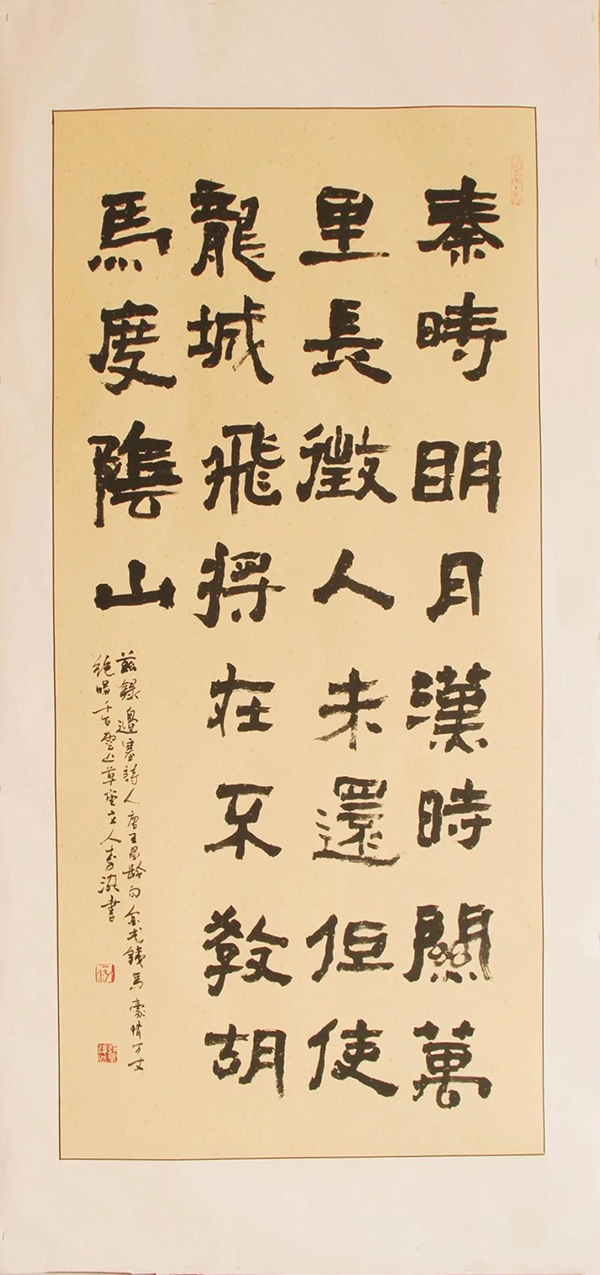 秦時明月漢時關萬
里長徵人未還但使
龍城飛将在不教胡
馬度陰山
茲錄邊塞詩人唐王昌齡句金戈鐵馬豪情万丈
絕唱千古草堂主人書